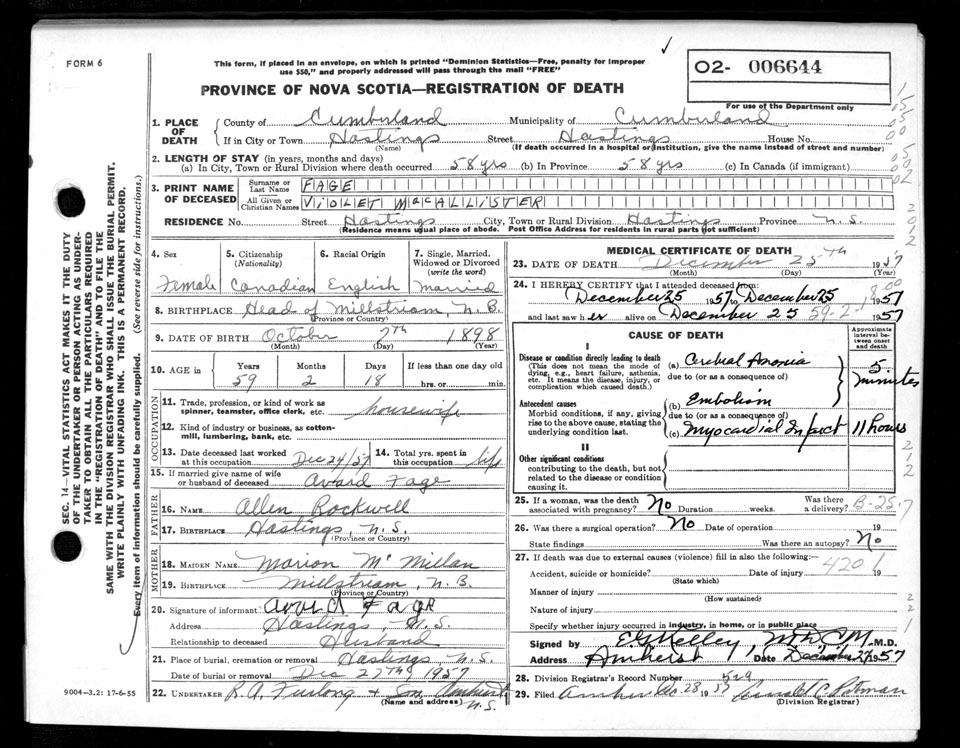 FORM 6
This form, if placed in an envelope, on which is printed "Dominion Statistics—Free, penalty for improper
use $50," and properly addressed will pass through the mail "FREE"
02- 006644
PROVINCE OF NOVA SCOTIA—REGISTRATION OF DEATH
For use of the Department only
1. PLACE OF DEATH
County of Cumberland Municipality of Cumberland
If in City or Town Hastings Street Hastings House No.
(Name) (If death occurred in a hospital or institution, give the name instead of street and number)
2. LENGTH OF STAY (in years, months and days)
(a) In City, Town or Rural Division where death occurred 58 yrs (b) In Province 58 yrs (c) In Canada (if immigrant)
3. PRINT NAME OF DECEASED
Surname or Last Name FAGE
All Given or Christian Names VIOLET MacALLISTER
RESIDENCE No. Street Hastings City, Town or Rural Division Hastings Province N.S.
(Residence means usual place of abode. Post Office Address for residents in rural parts not sufficient)
4. Sex
Female
5. Citizenship
(Nationality)
Canadian
6. Racial Origin
English
7. Single, Married,
Widowed or Divorced
(write the word)
Married
8. BIRTHPLACE Head of Millstream, N.B.
(Province or Country)
9. DATE OF BIRTH October 7th 1898
(Month) (Day) (Year)
10. AGE in
Years Months Days If less than one day old
59 2 18 hrs. or min.
OCCUPATION
11. Trade, profession, or kind of work as
spinner, teamster, office clerk, etc. housewife
12. Kind of industry or business, as cotton-
mill, lumbering, bank, etc.
13. Date deceased last worked
at this occupation Dec 24/57
14. Total yrs. spent in
this occupation life
15. If married give name of wife
or husband of deceased Avard Fage
FATHER
16. NAME Allen Rockwell
17. BIRTHPLACE Hastings N.S.
(Province or Country)
MOTHER
18. MAIDEN NAME Marion McMillan
19. BIRTHPLACE Millstream, N.B.
(Province or Country)
20. Signature of informant Avard Fage
Address Hastings, N.S.
Relationship to deceased Husband
21. Place of burial, cremation or removal Hastings N.S.
Date of burial or removal Dec 27th 1957
22. UNDERTAKER R. A. Furlong + Son Amherst
(Name and address) N.S.
MEDICAL CERTIFICATE OF DEATH
23. DATE OF DEATH December 25th 1957
(Month) (Day) (Year)
24. I HEREBY CERTIFY that I attended deceased from:
December 25 1957 to December 25 1957
and last saw her alive on December 25 1957
59-2-1 8.00
CAUSE OF DEATH
Approximate
interval be-
tween onset
and death
I
Disease or condition directly leading to death
(This does not mean the mode of
dying, e.g., heart failure, asthenia,
etc. It means the disease, injury, or
complication which caused death.)
(a) Cerebral Anoxia
due to (or as a consequence of)
5 minutes
Antecedent causes
Morbid conditions, if any, giving
rise to the above cause, stating the
underlying condition last.
(b) Embolism
due to (or as a consequence of)
(c) Myocardial Infarct 11 hours
II
Other significant conditions
contributing to the death, but not
related to the disease or condition
causing it.
25. If a woman, was the death
associated with pregnancy? No Duration weeks. Was there
a delivery? B-25.7
26. Was there a surgical operation? No Date of operation 19
State findings Was there an autopsy? No
27. If death was due to external causes (violence) fill in also the following:—
420.1
Accident, suicide or homicide? Date of injury 19
(State which)
Manner of injury
(How sustained)
Nature of injury
Specify whether injury occurred in industry, in home, or in public place
Signed by E G Kelley, M.D.C.M. M.D.
Address Amherst Date December 27 1957
28. Division Registrar's Record Number 529
29. Filed Amherst Dec. 28 1957
(Division Registrar)
SEC. 14—VITAL STATISTICS ACT MAKES IT THE DUTY
OF THE UNDERTAKER OR PERSON ACTING AS UNDER-
TAKER TO OBTAIN ALL THE PARTICULARS REQUIRED
IN THE "REGISTRATION OF DEATH" AND TO FILE THE
SAME WITH THE DIVISION REGISTRAR WHO SHALL ISSUE THE BURIAL PERMIT.
WRITE PLAINLY WITH UNFADING INK. THIS IS A PERMANENT RECORD.
Every item of information should be carefully supplied. (See reverse side for instructions.)
9004-3.2: 17-6-55